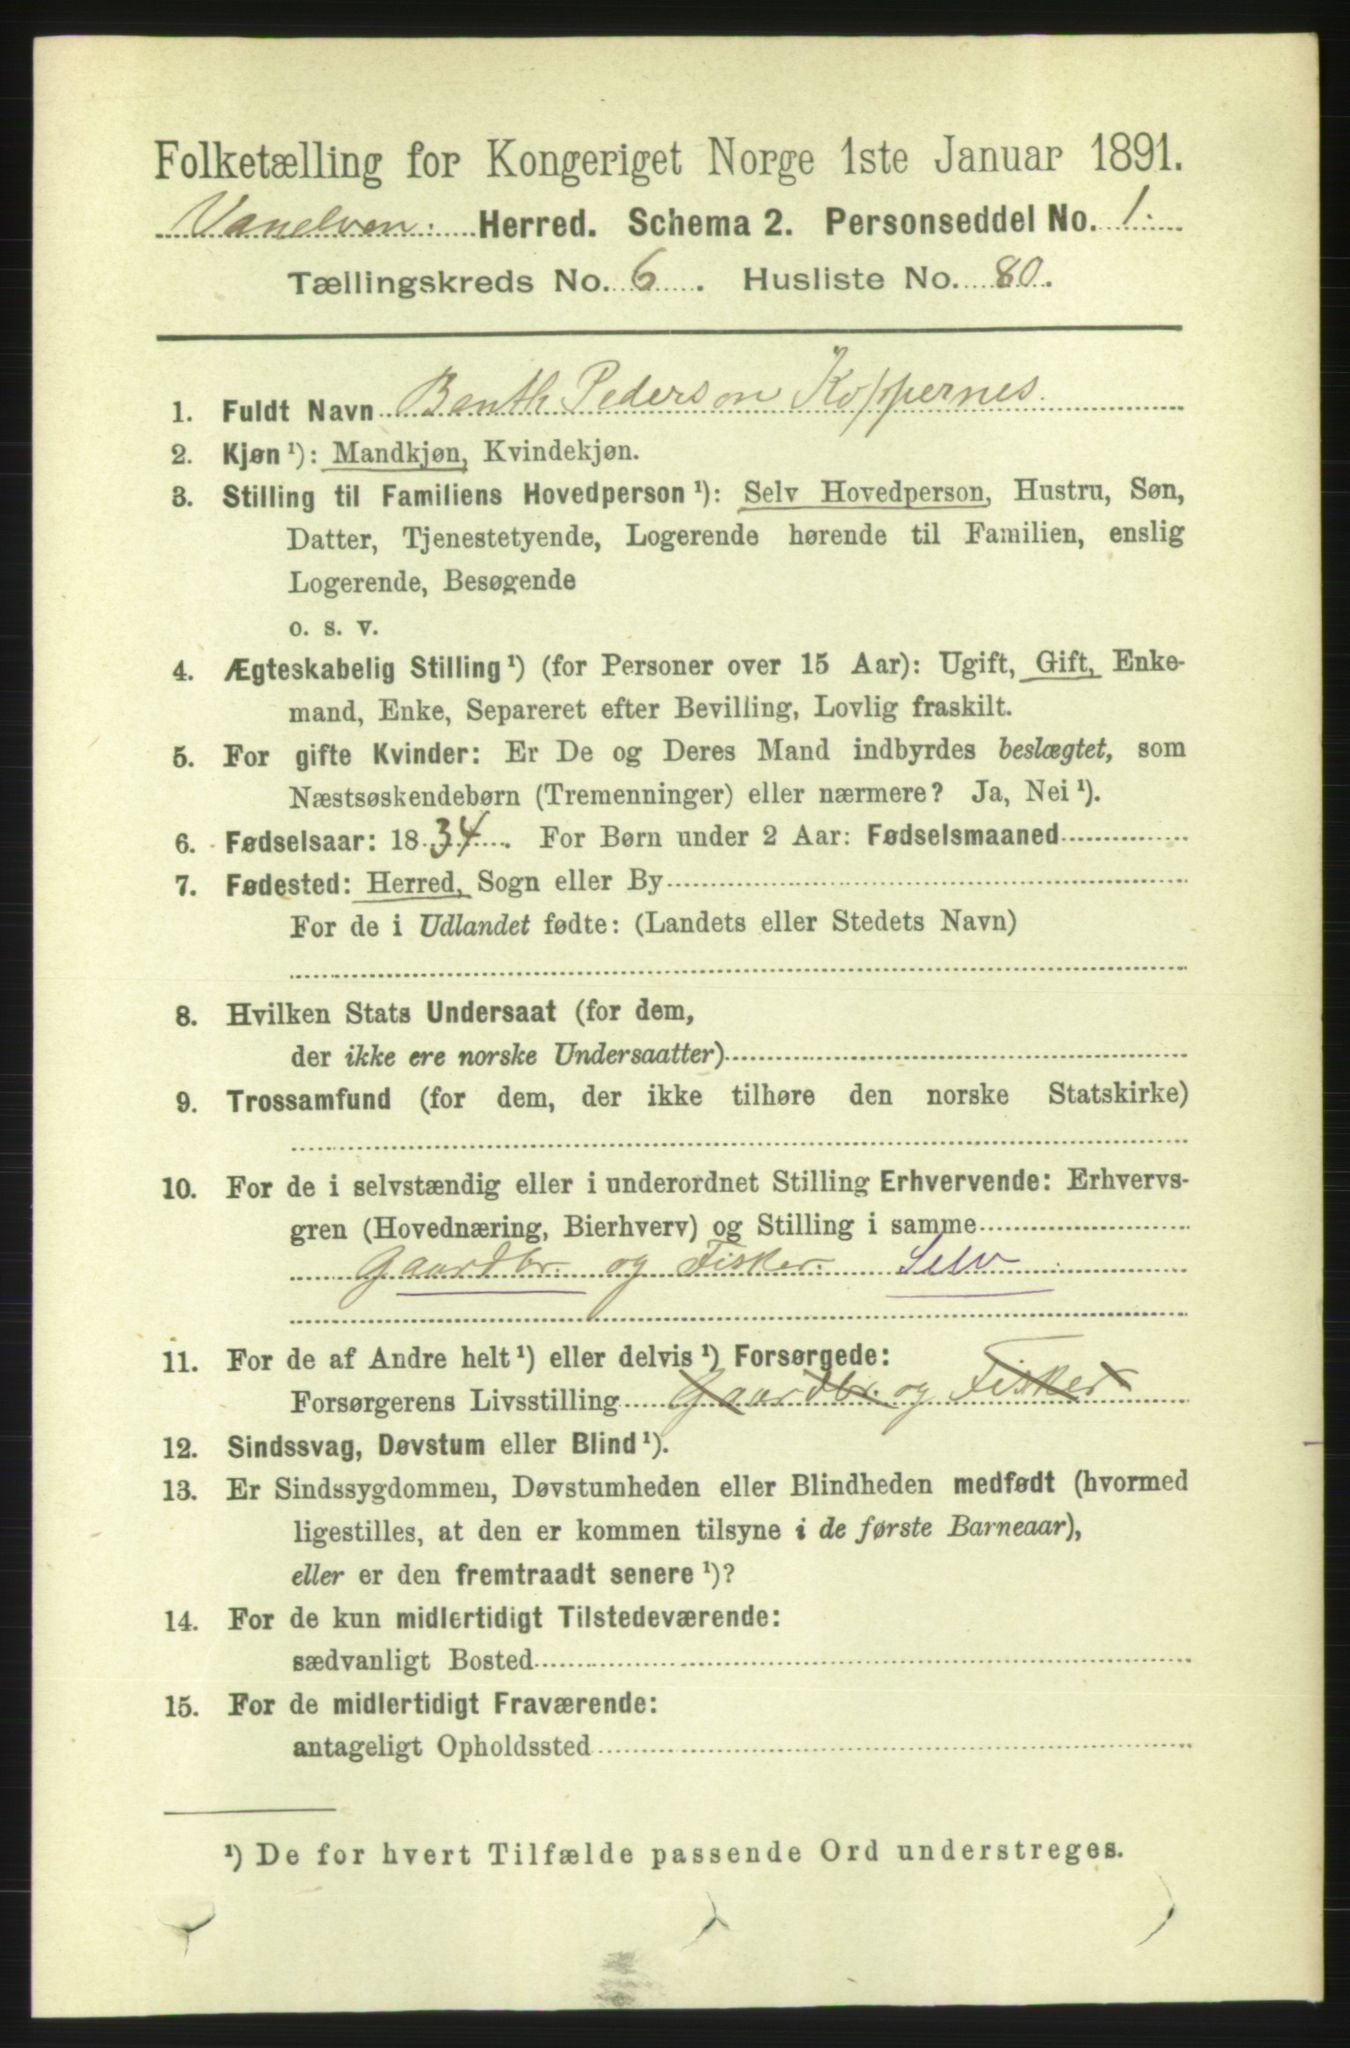 Folketælling for Kongeriget Norge 1ste Januar 1891.
Vanelven. Herred. Schema 2. Personseddel No. 1.
Tællingskreds No. 6. Husliste No. 80.
1. Fuldt Navn Benth Pederson Koppernes.
2. Kjøn ¹): Mandkjøn, Kvindekjøn.
3. Stilling til Familiens Hovedperson ¹): Selv Hovedperson, Hustru, Søn,
Datter, Tjenestetyende, Logerende hørende til Familien, enslig
Logerende, Besøgende
o. s. v.
4. Ægteskabelig Stilling ¹) (for Personer over 15 Aar): Ugift, Gift, Enke-
mand, Enke, Separeret efter Bevilling, Lovlig fraskilt.
5. For gifte Kvinder: Er De og Deres Mand indbyrdes beslægtet, som
Næstsøskendebørn (Tremenninger) eller nærmere? Ja, Nei ¹).
6. Fødselsaar: 1834. For Børn under 2 Aar: Fødselsmaaned
7. Fødested: Herred, Sogn eller By
For de i Udlandet fødte: (Landets eller Stedets Navn)
8. Hvilken Stats Undersaat (for dem,
der ikke ere norske Undersaatter)
9. Trossamfund (for dem, der ikke tilhøre den norske Statskirke)
10. For de i selvstændig eller i underordnet Stilling Erhvervende: Erhvervs-
gren (Hovednæring, Bierhverv) og Stilling i samme
Gaardbr. og Fisker. Selv
11. For de af Andre helt ¹) eller delvis ¹) Forsørgede:
Forsørgerens Livsstilling Gaardbr. og Fisker
12. Sindssvag, Døvstum eller Blind ¹).
13. Er Sindssygdommen, Døvstumheden eller Blindheden medfødt (hvormed
ligestilles, at den er kommen tilsyne i de første Barneaar),
eller er den fremtraadt senere ¹)?
14. For de kun midlertidigt Tilstedeværende:
sædvanligt Bosted
15. For de midlertidigt Fraværende:
antageligt Opholdssted
¹) De for hvert Tilfælde passende Ord understreges.